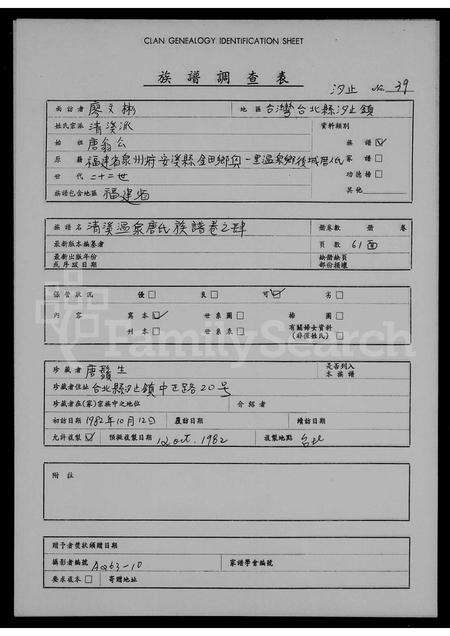 CLAN GENEALOGY IDENTIFICATION SHEET
族譜調查表
汐止 No. 39
面訪者 廖文彬 地區 台灣台北縣汐止鎮
姓氏宗派 清溪派 資料類別
始祖 唐翁公 族譜 ☑
原籍 福建省泉州府安溪縣 家譜 □
世代 二十二世 功德榜 □
族譜包含地區 福建省 其他
族譜名 清溪溫泉唐氏族譜卷之肆 冊卷數 冊 卷
最新版本編纂者 頁數 61面
最新出版年份 缺冊缺頁
或序跋日期 部份損壞
保管狀況 優 □ 良 □ 可 ☑ 劣 □
內容 寫本 ☑ 世系圖 □ 像圖 □
刊本 □ 世系表 □ 有關婦女資料 □
(非僅姓氏)
珍藏者 唐鬚生 是否列入
本族譜
珍藏者住址 台北縣汐止鎮中正路20号
珍藏者在(家)宗族中之地位 介紹者
初訪日期 1982年10月12日 覆訪日期 續訪日期
允許複製 ☑ 預擬複製日期 12 oct. 1982 複製地點 台北
附註
贈予者獎狀頒贈日期
攝影者編號 AQ63-10 家譜學會編號
要求在本 □ 寄贈地址
FamilySearch